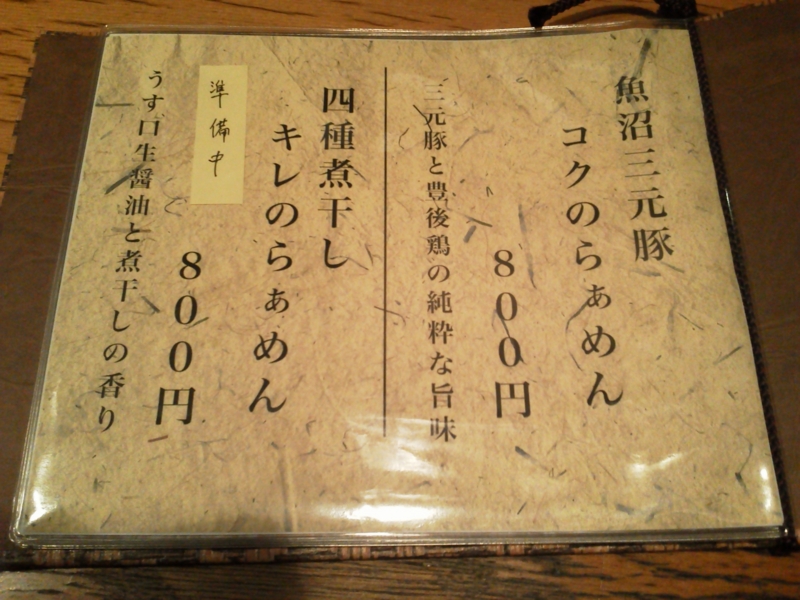 魚沼三元豚
コクのらぁめん
800円
三元豚と豊後鶏の純粋な旨味
四種煮干し
キレのらぁめん
準備中
800円
うす口生醤油と煮干しの香り